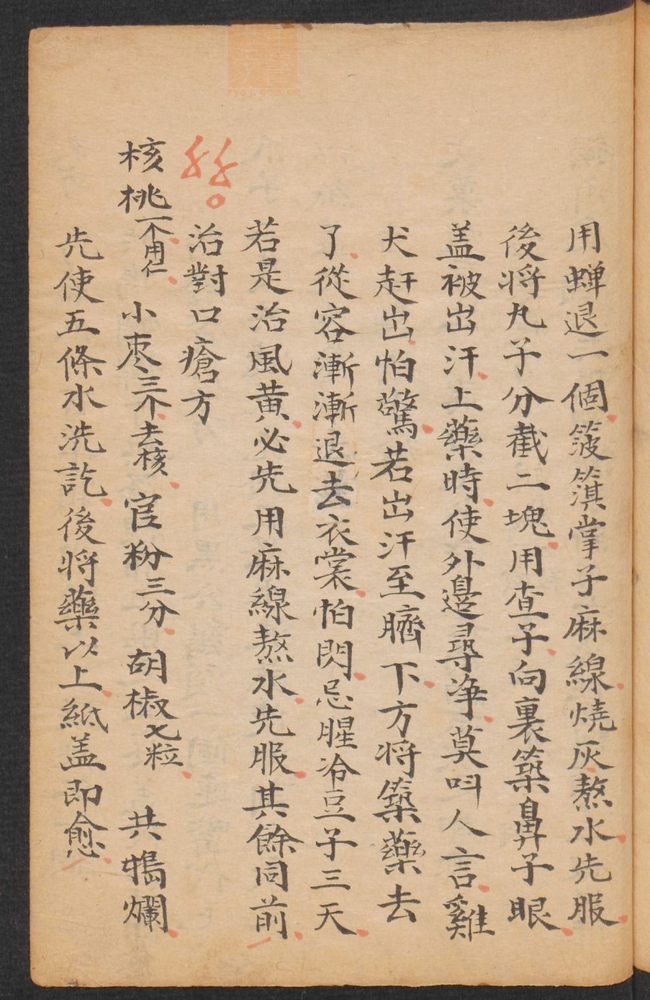 用蟬退一個箥箕掌子麻線燒灰熬水先服
後将丸子分截二塊用查子向裏築鼻子眼
盖被出汗上藥時使外邉尋净莫呌人言雞
犬赶出怕驚若出汗至臍下方将築藥去
了從容漸漸退去衣裳怕閃忌腥冷豆子三天
若是治風黄必先用麻線熬水先服其餘同前
治對口瘡方
核桃一个用仁 小枣三个去核 官粉三分 胡椒七粒 共搗爛
先使五條水洗訖後将藥以上紙盖即愈